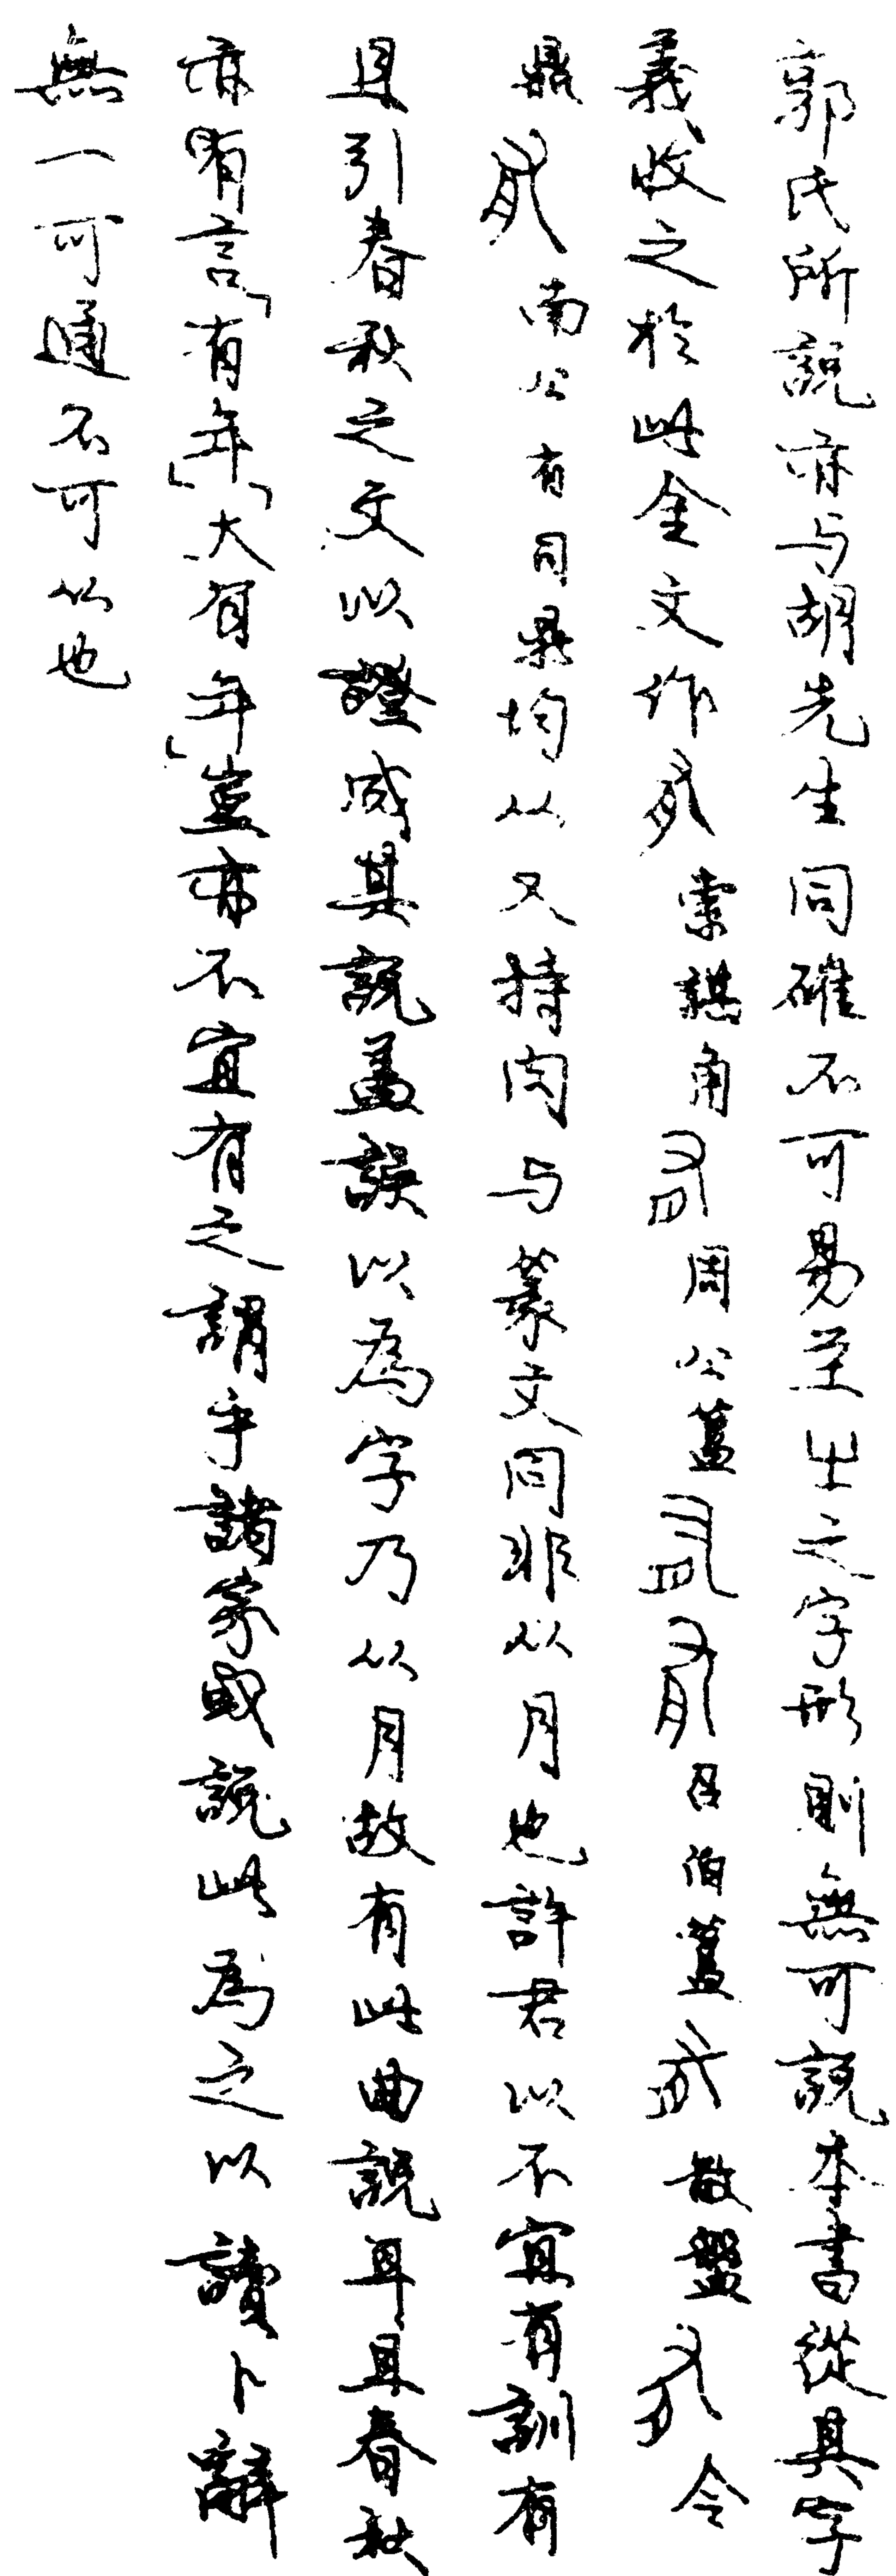 郭氏所說亦与胡先生同確不可易至㞢之字形則無可說本書從其字
義收之於此金文作 索諆角 周公簋 召伯簋 散盤 令
鼎 南公有司鼎均从又持肉与篆文同非从月也許君以不宜有訓有
且引春秋之文以證成其說蓋誤以為字乃从月故有此曲說耳且春秋
亦有言「有年」「大有年」豈亦不宜有之謂乎諸家或說此為之以讀卜辭
無一可通不可从也